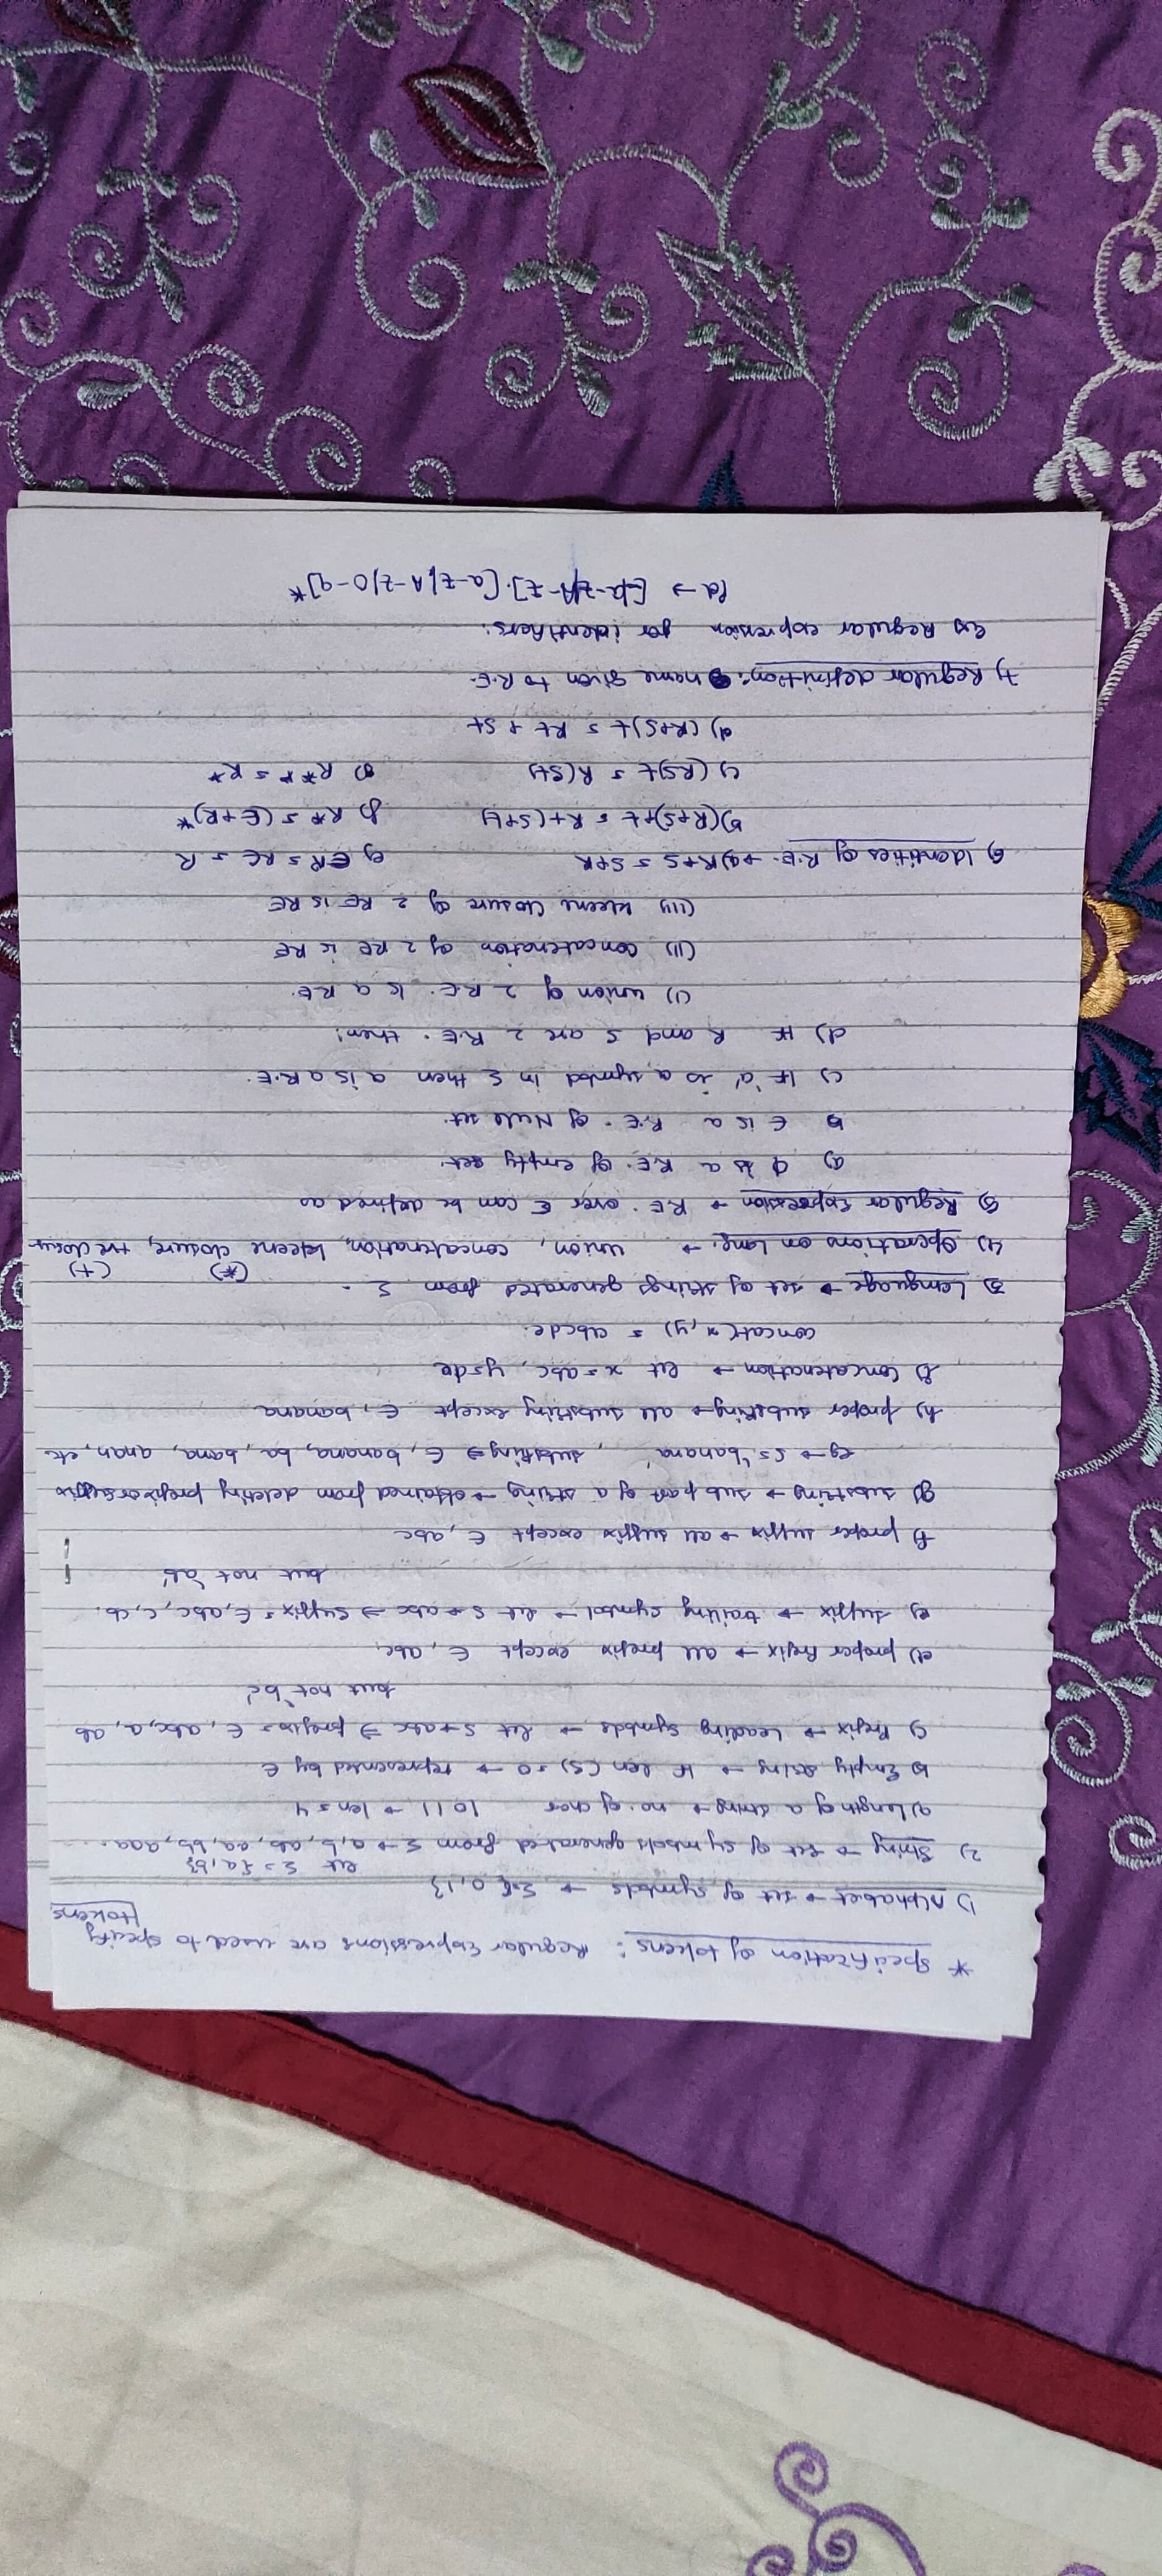 * Specification of tokens: Regular Expressions are used to specify tokens
1) Alphabet → set of symbols → Σ={0,1}
let Σ = {a,b}
2) String → set of symbols generated from Σ → a, b, ab, ea, bb, aaa...
a) Length of a string → no. of char 1011 → len = 4
b) Empty string → If len(S) = 0 → represented by ε
c) Prefix → Leading symbols → let S = abc ⇒ prefix = ε, abc, a, ab
but not 'bc'
d) proper Prefix → all prefix except ε, abc
e) suffix → trailing symbol → let s = abc ⇒ suffix = ε, abc, c, cb.
but not 'ab'
f) proper suffix → all suffix except ε, abc
g) substring → sub part of a string → obtained from deleting prefix or suffix
eg → s = 'banana', substring ⇒ ε, banana, ba, bana, anan, etc
h) proper substring → all substring except ε, banana
i) concatenation → let x = abc, y = de
concat(x,y) = abcde.
3) Language → set of strings generated from Σ.
(*) (+)
4) Operations on Lang. → union, concatenation, kleene closure, +ve closur
5) Regular Expression → R.E. over Σ can be defined as
a) ϕ is a R.E. of empty set.
b ε is a R.E. of Null set.
c) If 'a' is a symbol in Σ then a is a R.E.
d) If R and S are 2 R.E. then:
(i) union of 2 R.E. is a R.E.
(ii) concatenation of 2 RE is RE
(iii) kleene closure of 2 RE is RE
6) Identities of R.E. → a) R+S = S+R e) εR = Rε = R
b) (R+S)+t = R+(S+t) f) R* = (ε+R)*
c) (RS)t = R(St) g) R** = R*
d) (R+S)t = Rt + St
7) Regular definition: name given to R.E.
ex) Regular expression for identifiers:
id → [a-z|A-Z].[a-z|A-Z|0-9]*